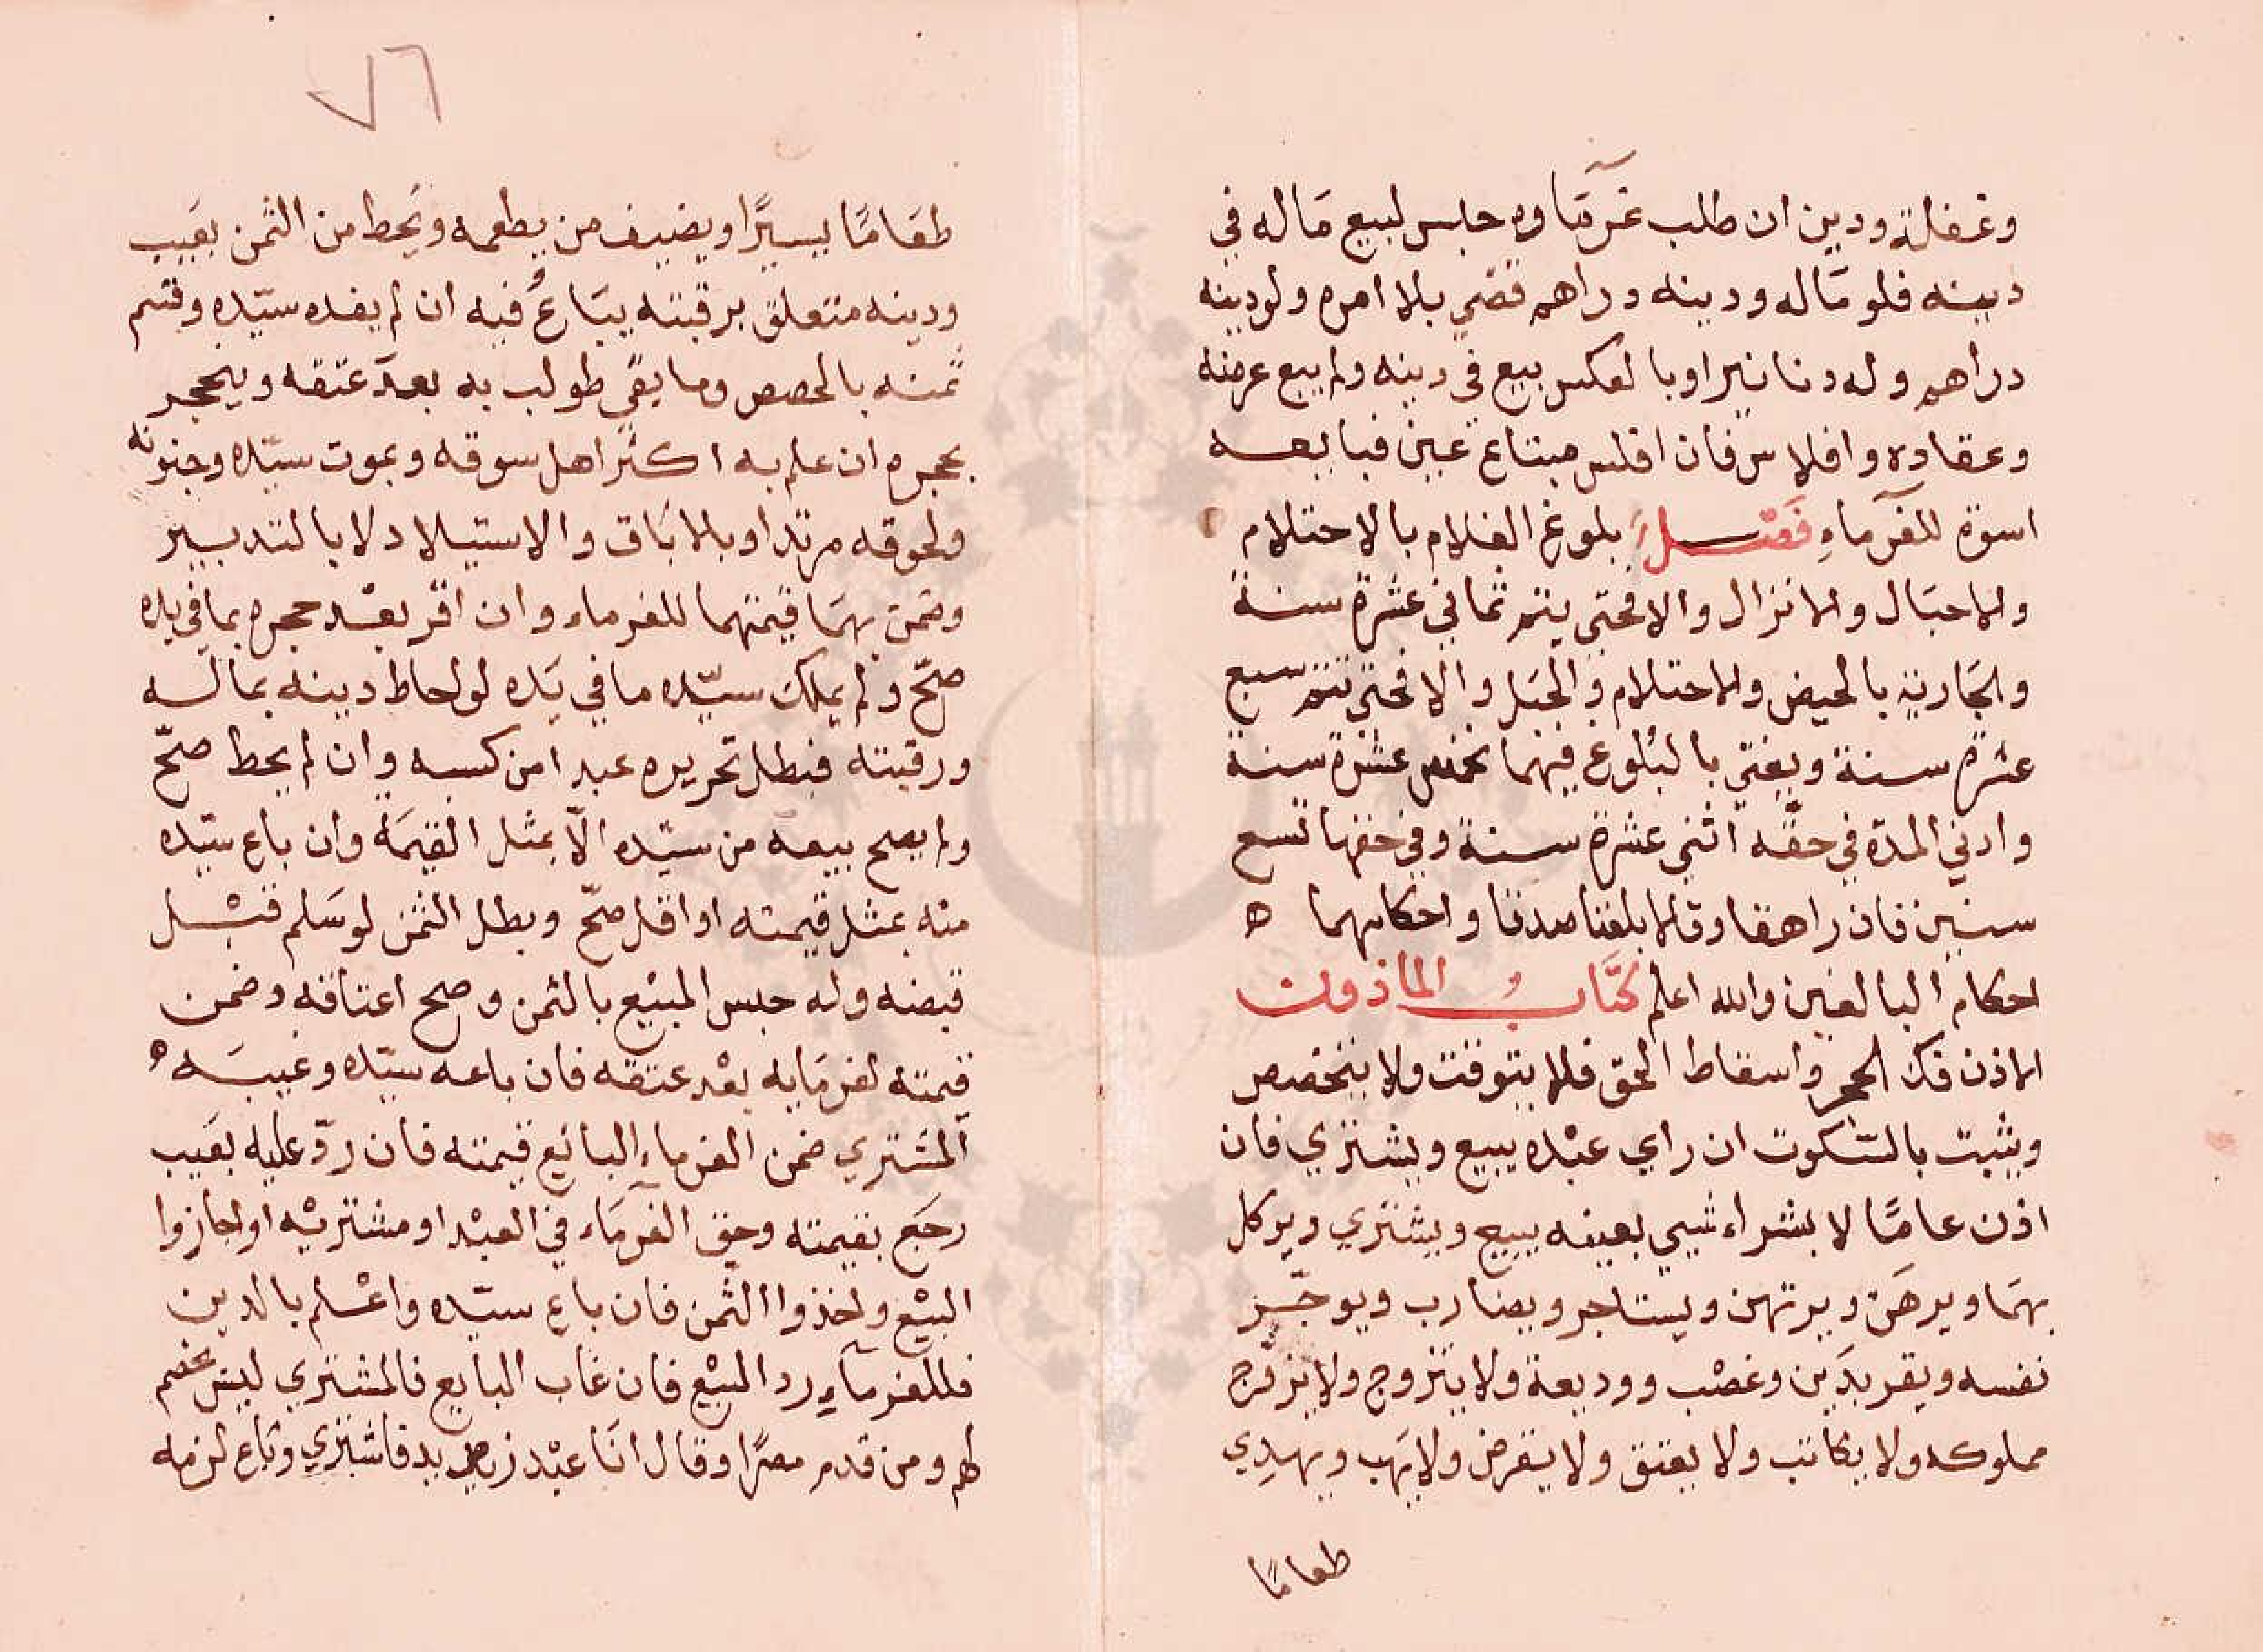 وغفلة ودين ان طلب غرماوه حبس لبيع ماله في
دينه فلو ماله ودينه دراهم قضي بلا امره ولو دينه
دراهم وله دنانير او بالعكس بيع في دينه ولم يبع عرضه
وعقاره وافلاس فان افلس مبتاع عين فبايعه
اسوة للغرماء فصل بلوغ الغلام بالاحتلام
والاحبال والانزال والا فحتى يتم ثماني عشرة سنة
والجارية بالحيض والاحتلام والحبل والا فحتى تتم سبع
عشرة سنة ويفتى بالبلوغ فيهما بخمس عشرة سنة
وادني المدة في حقه اثني عشرة سنة وفي حقها تسع
سنين فان راهقا وقالا بلغنا صدقا واحكامهما ه
احكام البالغين والله اعلم كتاب الماذون
الاذن فك الحجر واسقاط الحق فلا يتوقت ولا يتخصص
ويثبت بالسكوت ان راي عبده يبيع ويشتري فان
اذن عاما لا بشراء شيي بعينه يبيع ويشتري ويوكل
بهما ويرهن ويرتهن ويستاجر ويضارب ويوجر
نفسه ويقر بدين وغصب ووديعة ولا يتزوج ولا يزوج
مملوكه ولا يكاتب ولا يعتق ولا يقرض ولا يهب ويهدي
طعاما
٧٦
طعاما يسيرا ويضيف من يطعمه ويحط من الثمن بعيب
ودينه متعلق برقبته يباع فيه ان لم يفده سيده وقسم
ثمنه بالحصص وما بقي طولب به بعد عتقه وينحجر
بحجره ان علم به اكثر اهل سوقه وبموت سيده وجنونه
ولحوقه مرتدا وبالاباق والاستيلاد لا بالتدبير
وضمن بهما قيمتهما للغرماء وان اقر بعد حجره بما في يده
صح ولم يملك سيده ما في يده لو احاط دينه بماله
ورقبته فبطل تحريره عبدا من كسبه وان لم يحط صح
ولم يصح بيعه من سيده الا بمثل القيمة وان باع سيده
منه بمثل قيمته او اقل صح وبطل الثمن لو سلم قبل
قبضه وله حبس المبيع بالثمن وصح اعتاقه وضمن
قيمته لغرمايه بعد عتقه فان باعه سيده وغيبه ه
المشتري ضمن الغرماء البائع قيمته فان رد عليه بعيب
رجع بقيمته وحق الغرماء في العبد او مشتريه او اجازوا
البيع واخذوا الثمن فان باع سيده واعلم بالدين
فللغرماء رد البيع فان غاب البايع فالمشتري ليس بخصم
لهم ومن قدم مصرا وقال انا عبد زيد فاشتري وباع لزمه